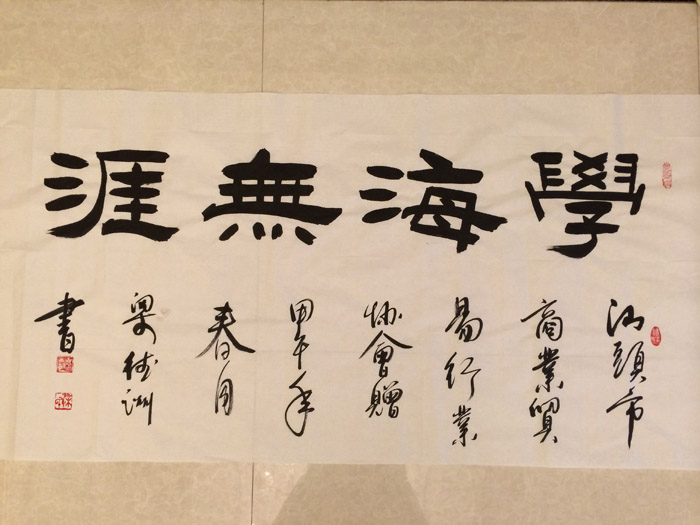 學海無涯
汕頭市
商業貿
易行業
協會贈
甲午年
春月
梁
書